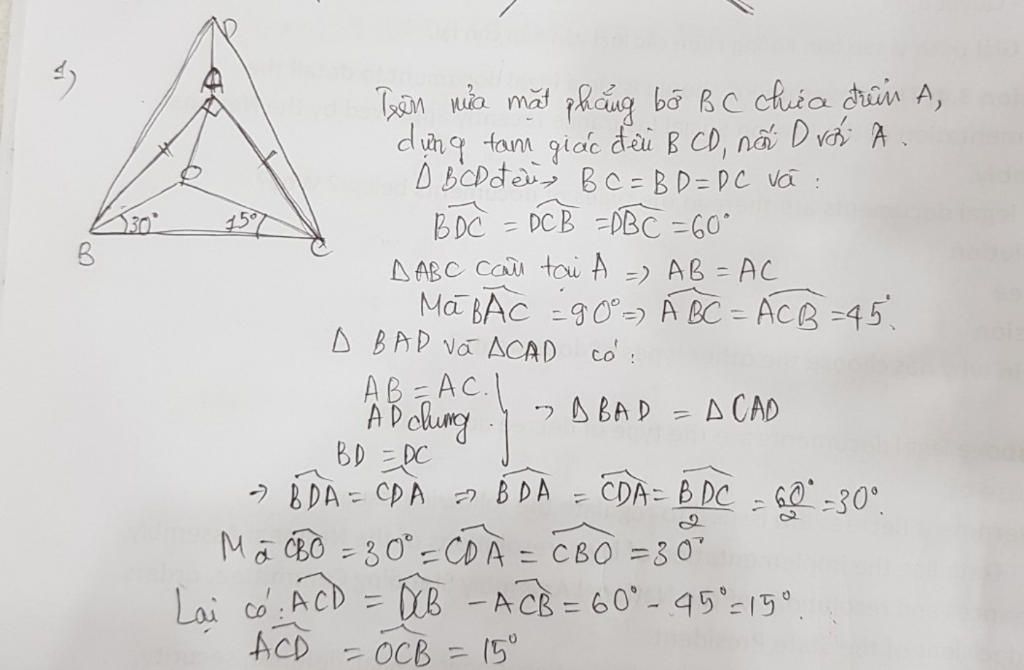 1)
D
A
O
30° 15°
B C
Trên nửa mặt phẳng bờ BC chứa điểm A,
dựng tam giác đều BCD, nối D với A.
Δ BCD đều → BC = BD = DC và :
BDC = DCB = DBC = 60°
ΔABC cân tại A => AB = AC
Mà BAC = 90° => ABC = ACB = 45°.
Δ BAD và ΔCAD có :
AB = AC.
AD chung
BD = DC
→ Δ BAD = Δ CAD
→ BDA = CDA => BDA = CDA = BDC/2 = 60°/2 = 30°.
Mà CBO = 30° = CDA = CBO = 30°
Lại có : ACD = DCB - ACB = 60° - 45° = 15°.
ACD = OCB = 15°